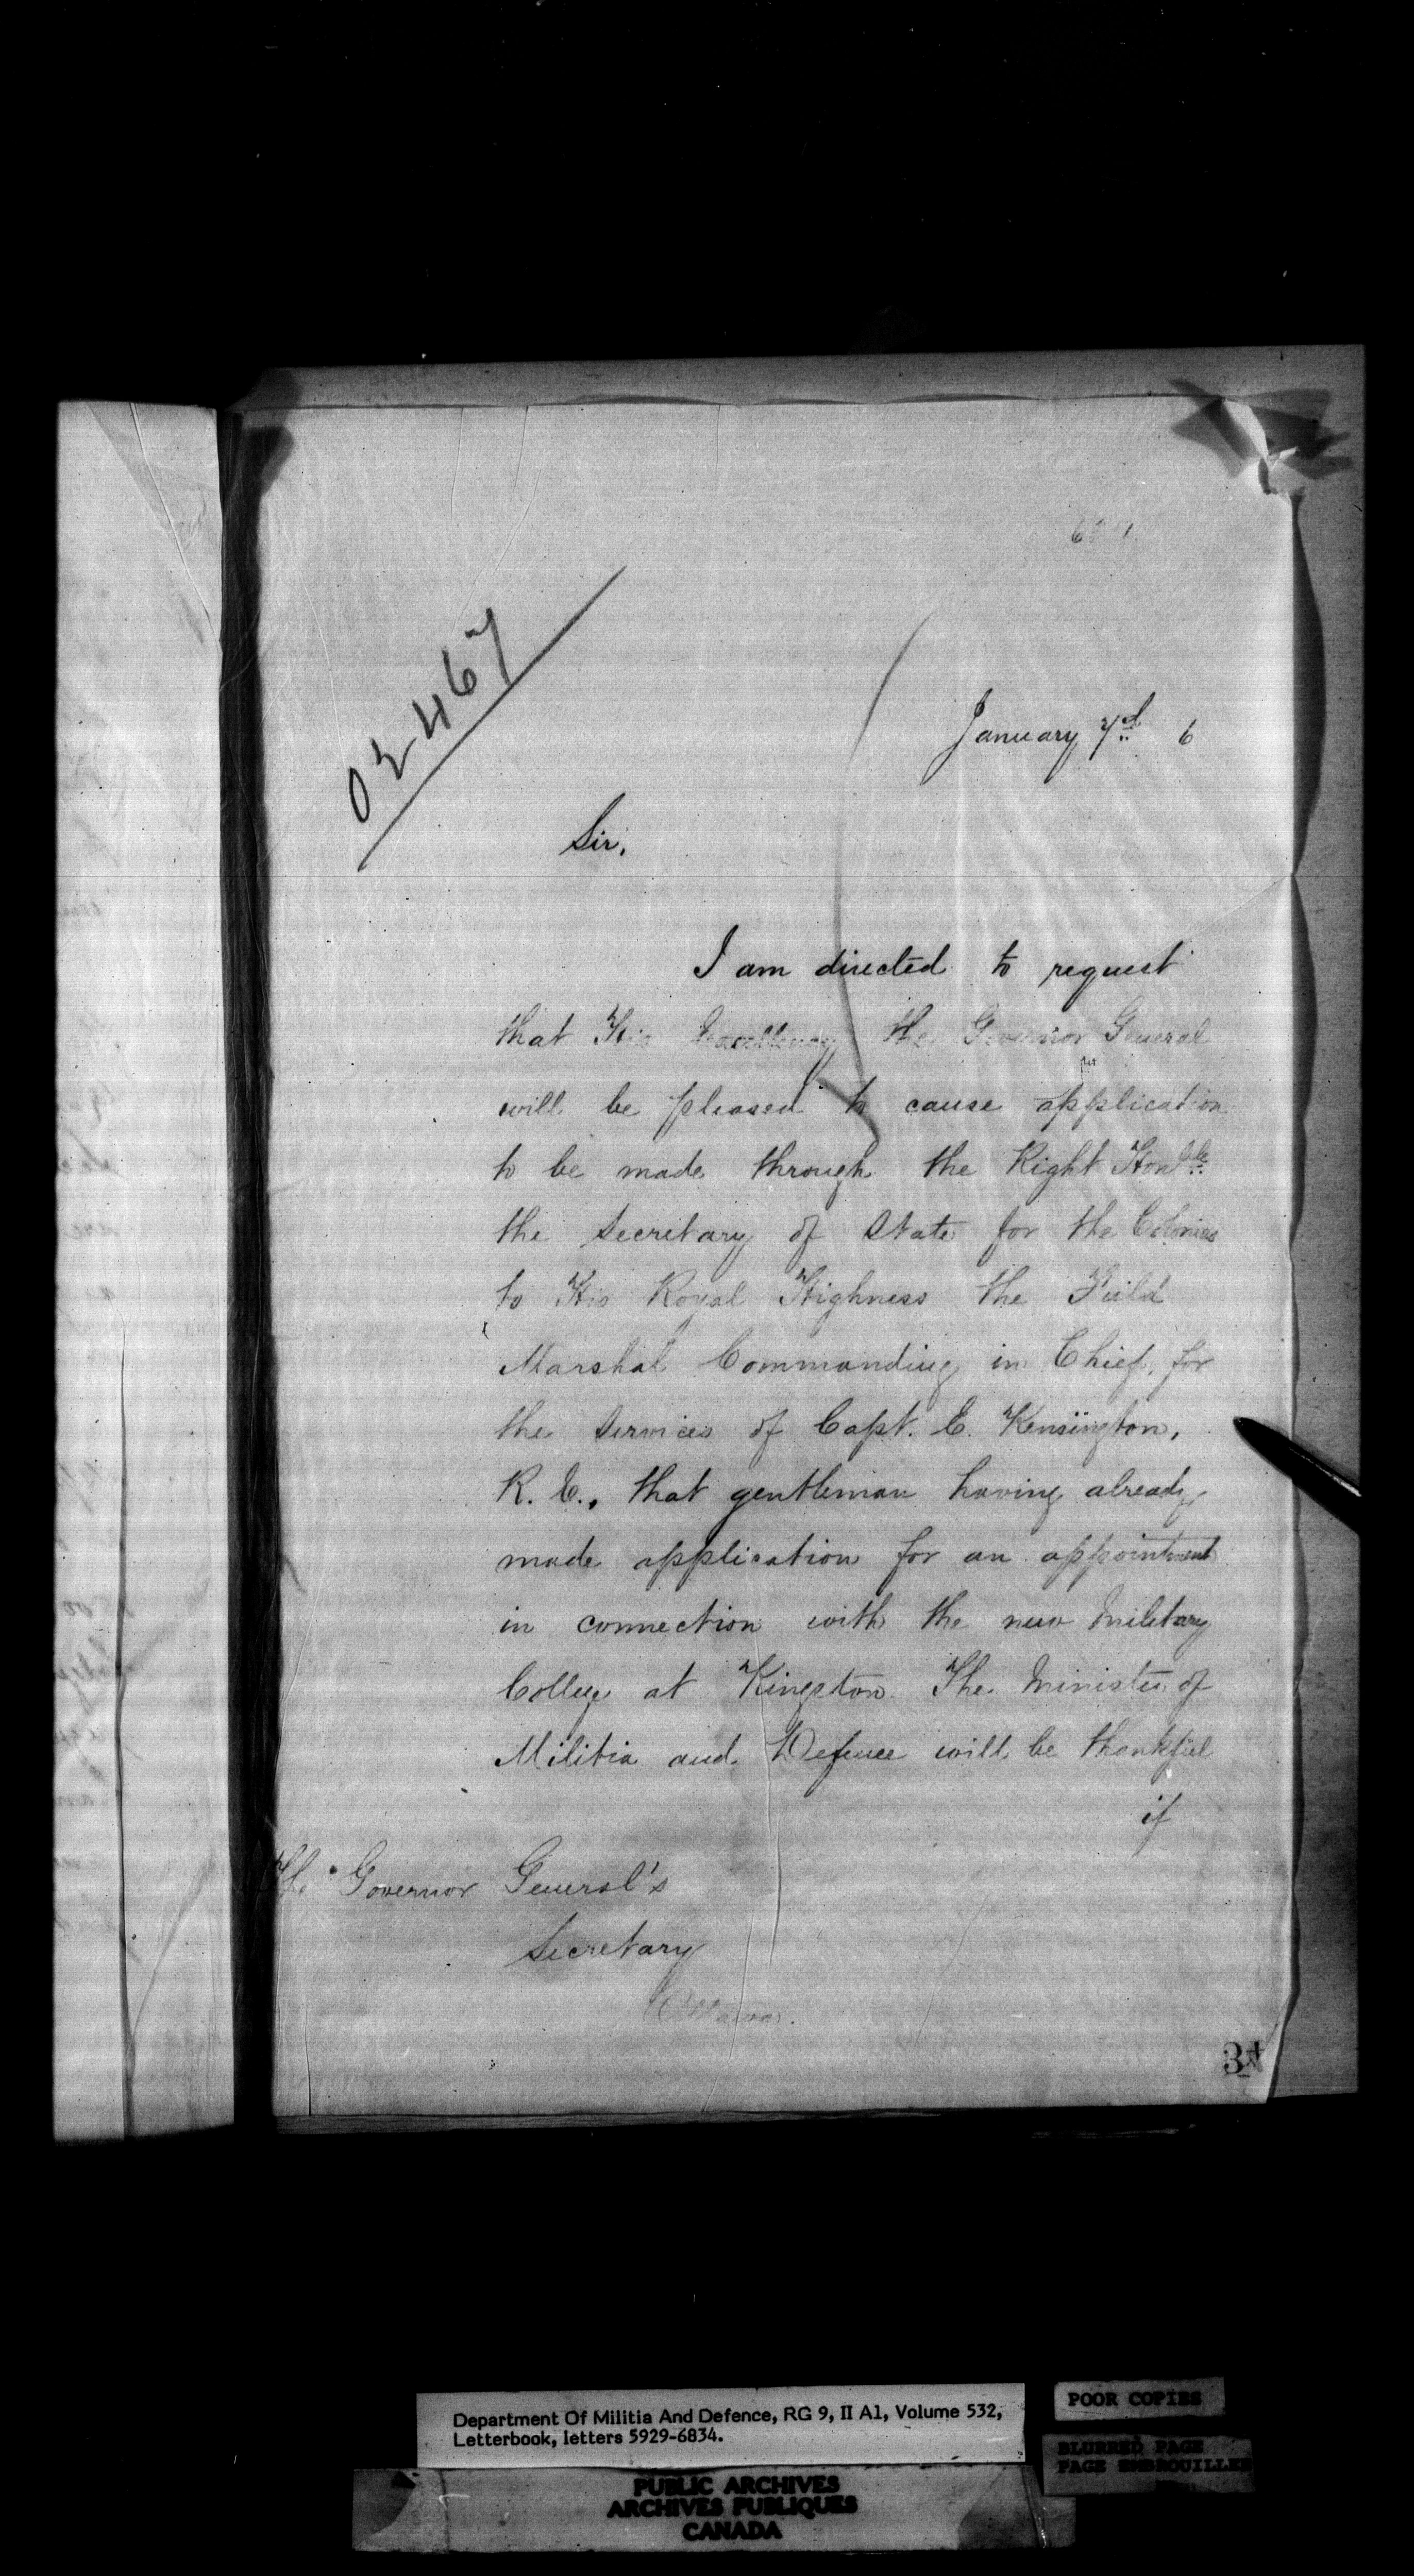 02467
January 7th 6
Sir,
I am directed to request
that His Excellency the Governor General
will be pleased to cause application
to be made through the Right Honble
the Secretary of State for the Colonies
to His Royal Highness the Field
Marshal Commanding in Chief, for
the Services of Capt. E. Kensington,
R. E., that gentleman having already
made application for an appointment
in connection with the new Military
College at Kingston. The Minister of
Militia and Defence will be thankful
if
The Governor General's
Secretary
Ottawa.
34
Department Of Militia And Defence, RG 9, II A1, Volume 532,
Letterbook, letters 5929-6834.
POOR COPIES
BLURRED PAGE
PAGE EMBROUILLEE
PUBLIC ARCHIVES
ARCHIVES PUBLIQUES
CANADA